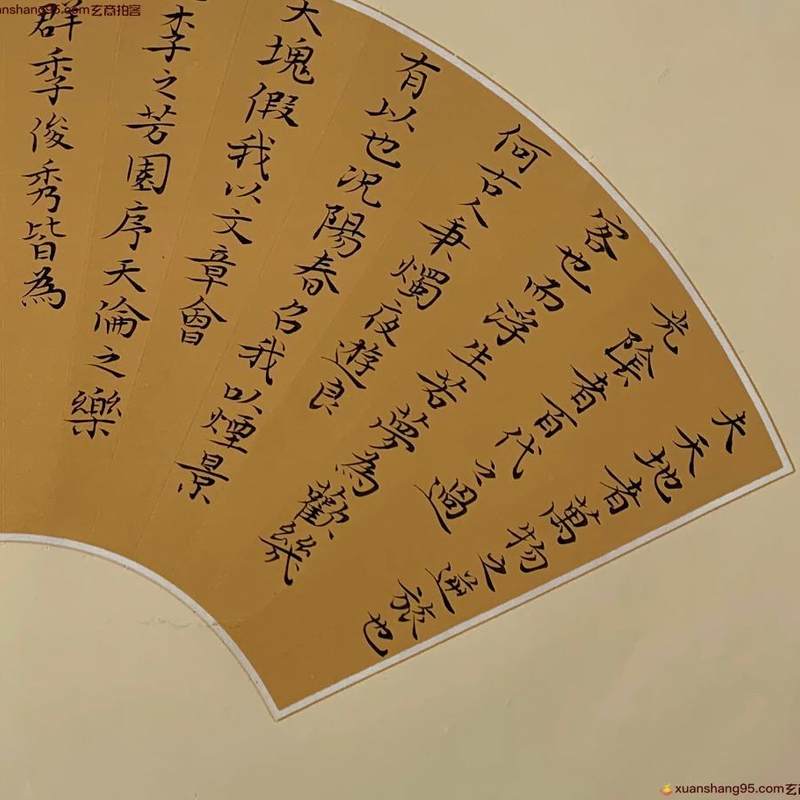 anshang95.com玄商拍客
夫天地者萬物之逆旅也
光陰者百代之過
客也而浮生若夢為歡幾
何古人秉燭夜遊良
有以也況陽春召我以煙景
大塊假我以文章會
李之芳園序天倫之樂
群季俊秀皆為
xuanshang95.com玄商